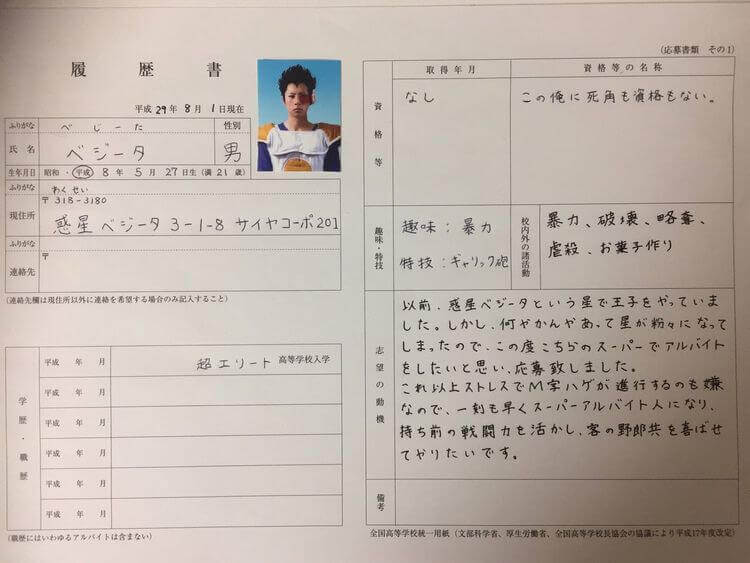 履歴書
平成 29年 8月 1日現在
ふりがな べじーた 性別
氏名 ベジータ 男
生年月日 昭和・平成 8年 5月 27日生(満 21歳)
ふりがな わくせい
現住所 〒318-3180
惑星ベジータ3-1-8 サイヤコーポ201
ふりがな
連絡先 〒
(連絡先欄は現住所以外に連絡を希望する場合のみ記入すること)
学歴・職歴
平成 年 月 超エリート高等学校入学
平成 年 月
平成 年 月
平成 年 月
平成 年 月
平成 年 月
(職歴にはいわゆるアルバイトは含まない)
(応募書類 その1)
資格等
取得年月 資格等の名称
なし この俺に死角も資格もない。
趣味・特技
趣味:暴力
特技:ギャリック砲
校内外の諸活動
暴力、破壊、略奪、
虐殺、お菓子作り
志望の動機
以前、惑星ベジータという星で王子をやっていま
した。しかし、何やかんやあって星が粉々になって
しまったので、この度こちらのスーパーでアルバイト
をしたいと思い、応募致しました。
これ以上ストレスでM字ハゲが進行するのも嫌
なので、一刻も早くスーパーアルバイト人になり、
持ち前の戦闘力を活かし、客の野郎共を喜ばせ
てやりたいです。
備考
全国高等学校統一用紙(文部科学省、厚生労働省、全国高等学校長協会の協議により平成17年度改定)